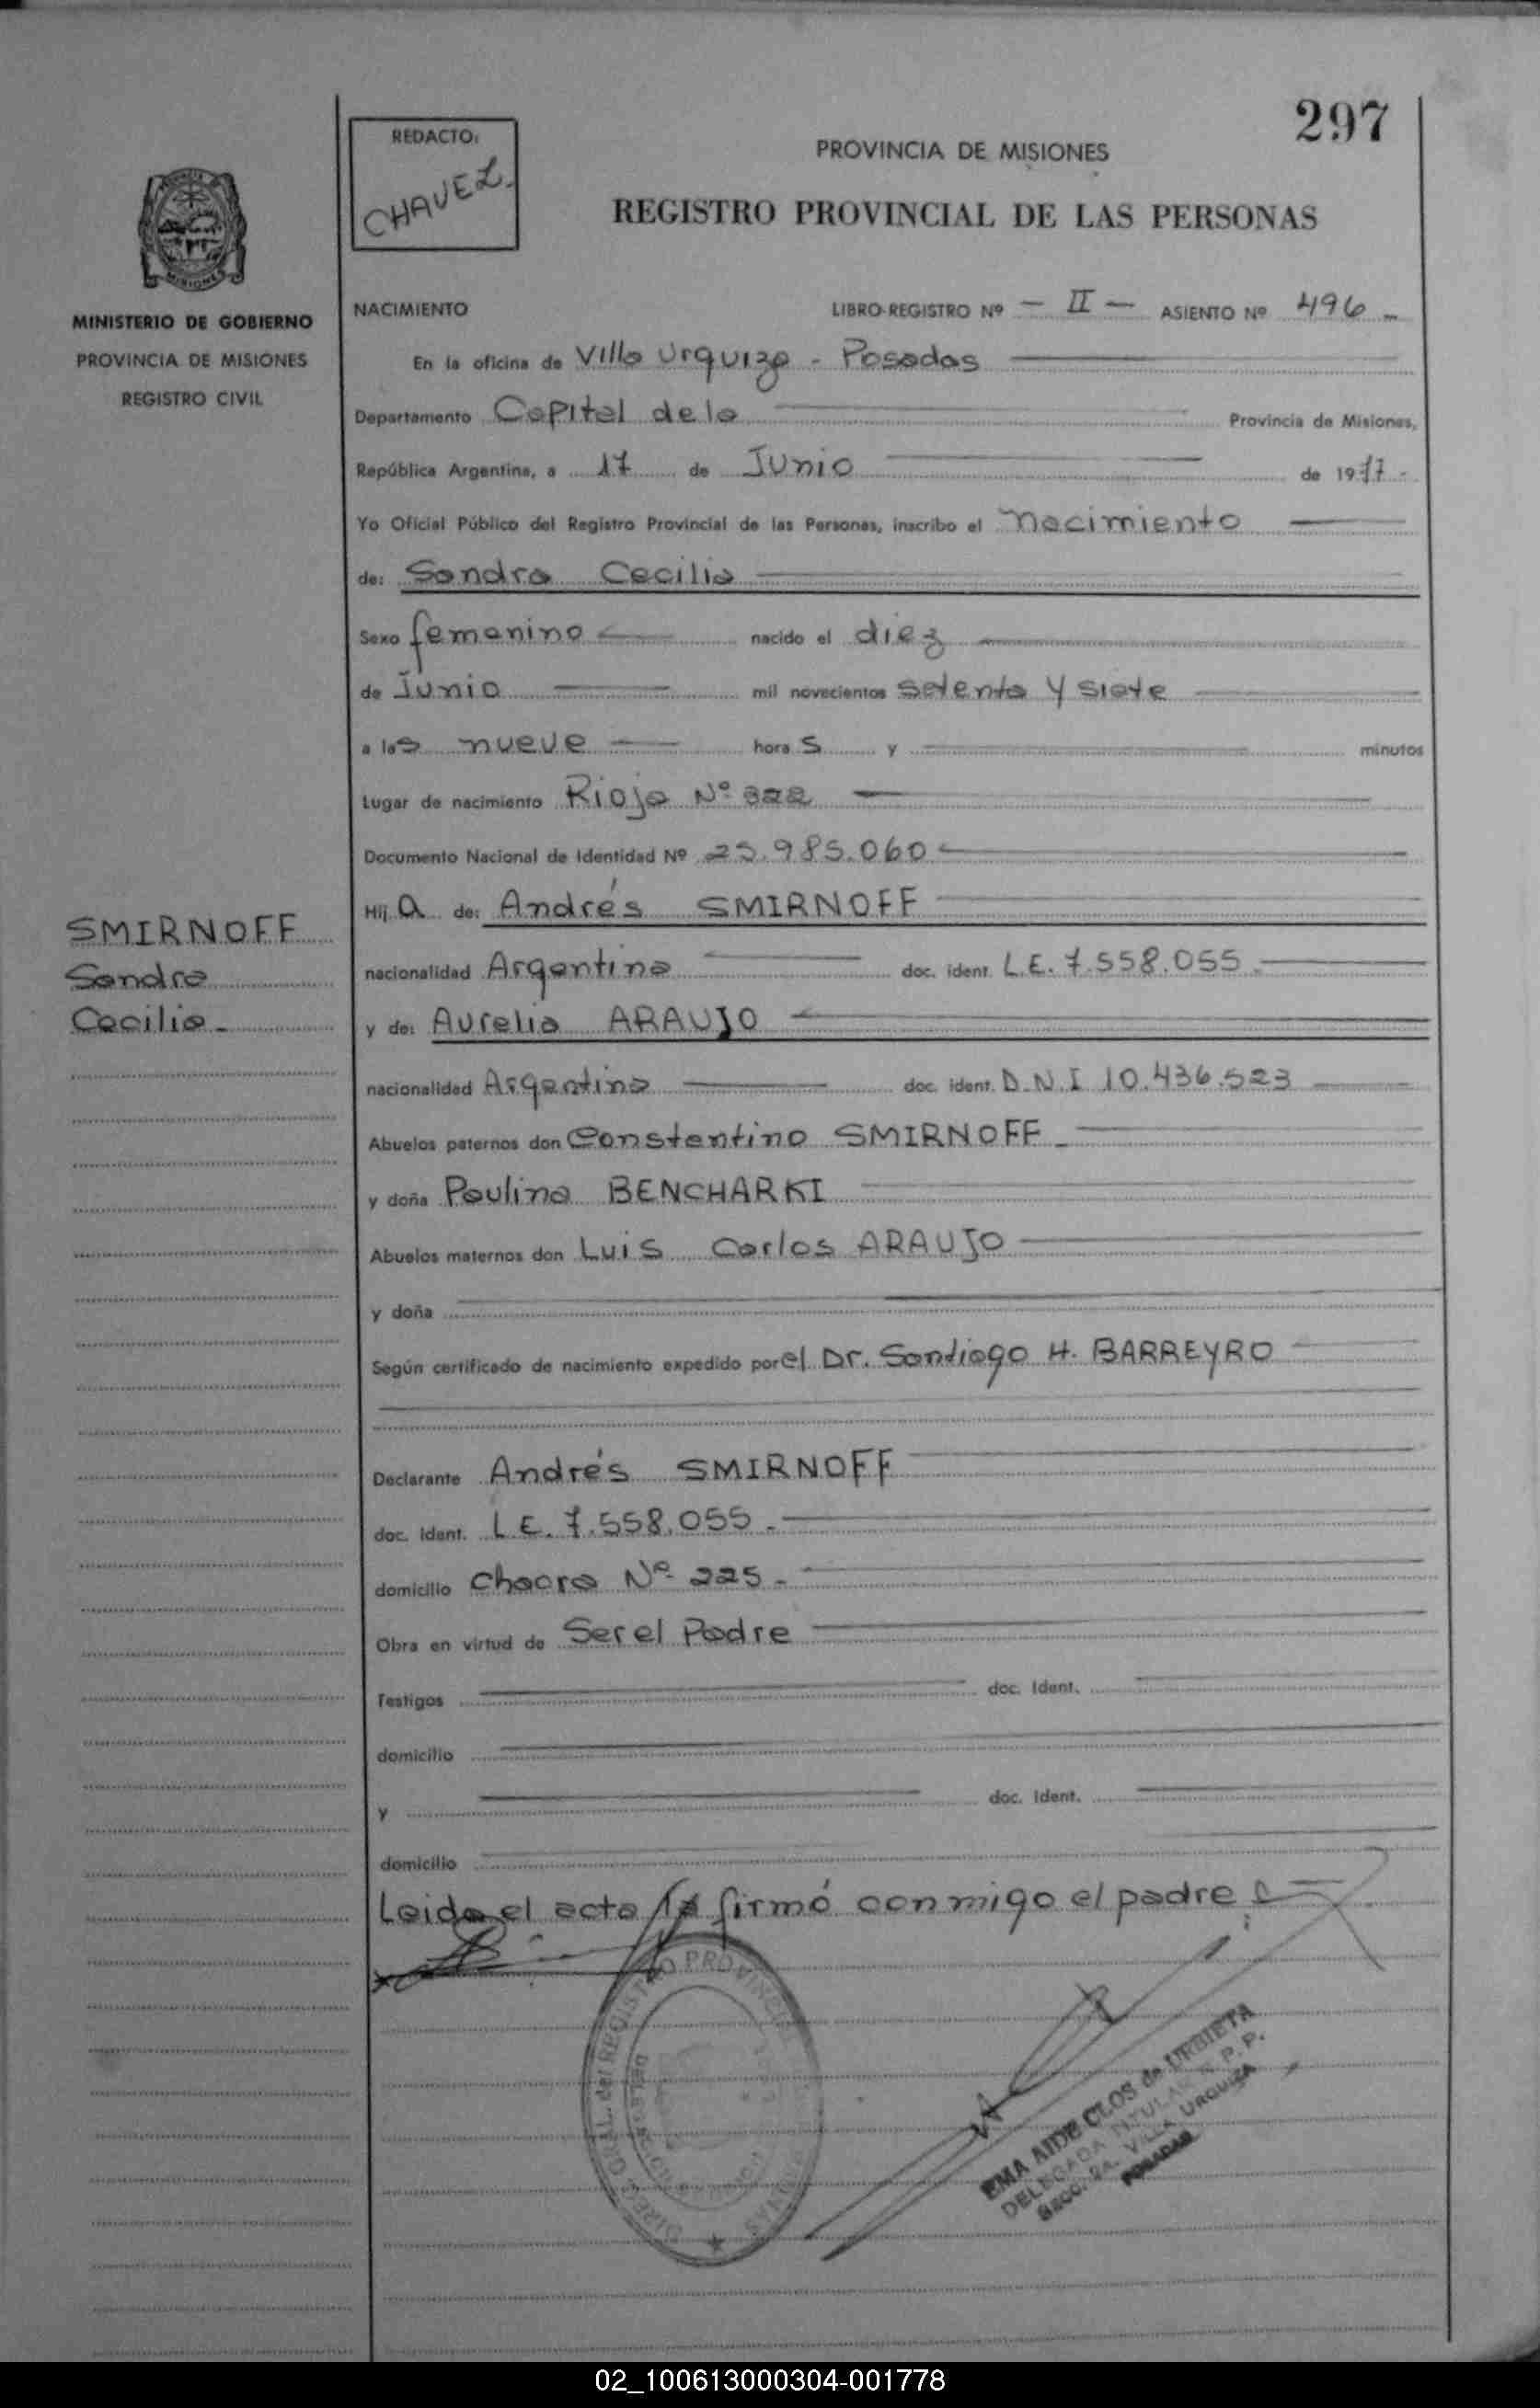 297
REDACTO:
CHAVEZ.
PROVINCIA DE MISIONES
REGISTRO PROVINCIAL DE LAS PERSONAS
MISIONES
MINISTERIO DE GOBIERNO
PROVINCIA DE MISIONES
REGISTRO CIVIL
NACIMIENTO LIBRO-REGISTRO Nº - II - ASIENTO Nº 496 -
En la oficina de Villa Urquiza - Posadas
Departamento Capital de la Provincia de Misiones,
República Argentina, a 17 de Junio de 1977 -
Yo Oficial Público del Registro Provincial de las Personas, inscribo el nacimiento
de: Sandra Cecilia
Sexo femenino nacido el diez
de Junio mil novecientos setenta y siete
a las nueve horas y minutos
Lugar de nacimiento Rioja Nº 322
Documento Nacional de Identidad Nº 25.985.060
Hija de: Andrés SMIRNOFF
SMIRNOFF
Sandra
Cecilia -
nacionalidad Argentina doc. ident. L.E. 7.558.055
y de: Aurelia ARAUJO
nacionalidad Argentina doc. ident. D.N.I 10.436.523
Abuelos paternos don Constantino SMIRNOFF -
y doña Paulina BENCHARKI
Abuelos maternos don Luis Carlos ARAUJO
y doña
Según certificado de nacimiento expedido por el Dr. Santiago H. BARREYRO
Declarante Andrés SMIRNOFF
doc. ident. L.E. 7.558.055 -
domicilio Chacra Nº 225 -
Obra en virtud de Ser el Padre
Testigos doc. Ident.
domicilio
y doc. Ident.
domicilio
Leida el acta la firmó conmigo el padre
DIREC. GRAL. del REGISTRO PROVINCIAL
EMA AIDE CLOS de URBIETA
DELEGADA TITULAR R. P. P.
SECC. 2A. VILLA URQUIZA
POSADAS
02_100613000304-001778